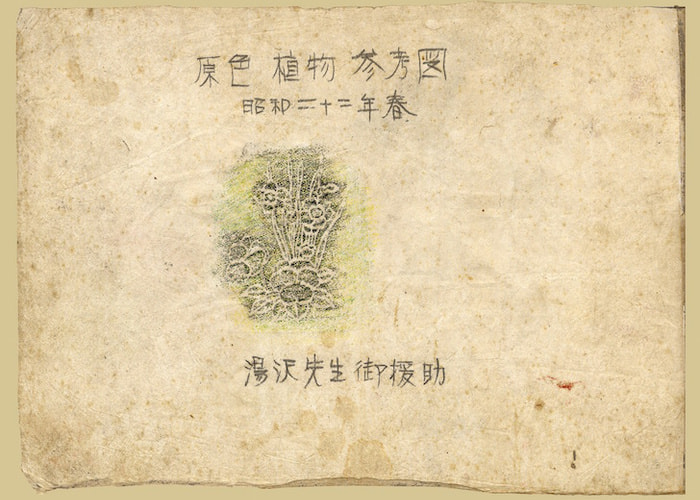 原色 植物 参考図
昭和二十二年春
湯沢先生御援助